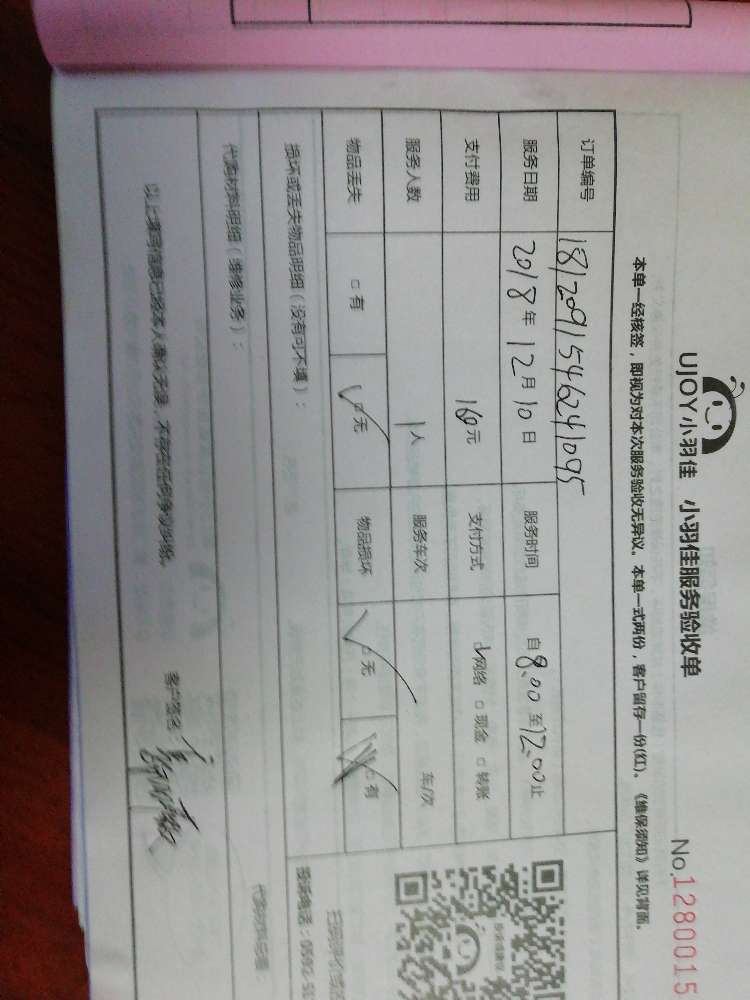 UJOY小羽佳 小羽佳服务验收单
No.1280015
本单一经核签，即视为对本次服务验收无异议。本单一式两份，客户留存一份(红)。《维保须知》详见背面。
订单编号 1812091546241095
服务日期 2018年12月10日 服务时间 自8:00至12:00止
支付费用 160元 支付方式 ☑网络 □现金 □转账
服务人数 1人 服务车次 车/次
物品丢失 □有 ☑无 物品损坏 ☑无 □有
损坏或丢失物品明细（没有可不填）：
代购材料明细（维修业务）：
以上填写信息已经本人确认无误，不存在任何争议纠纷。
客户签名：